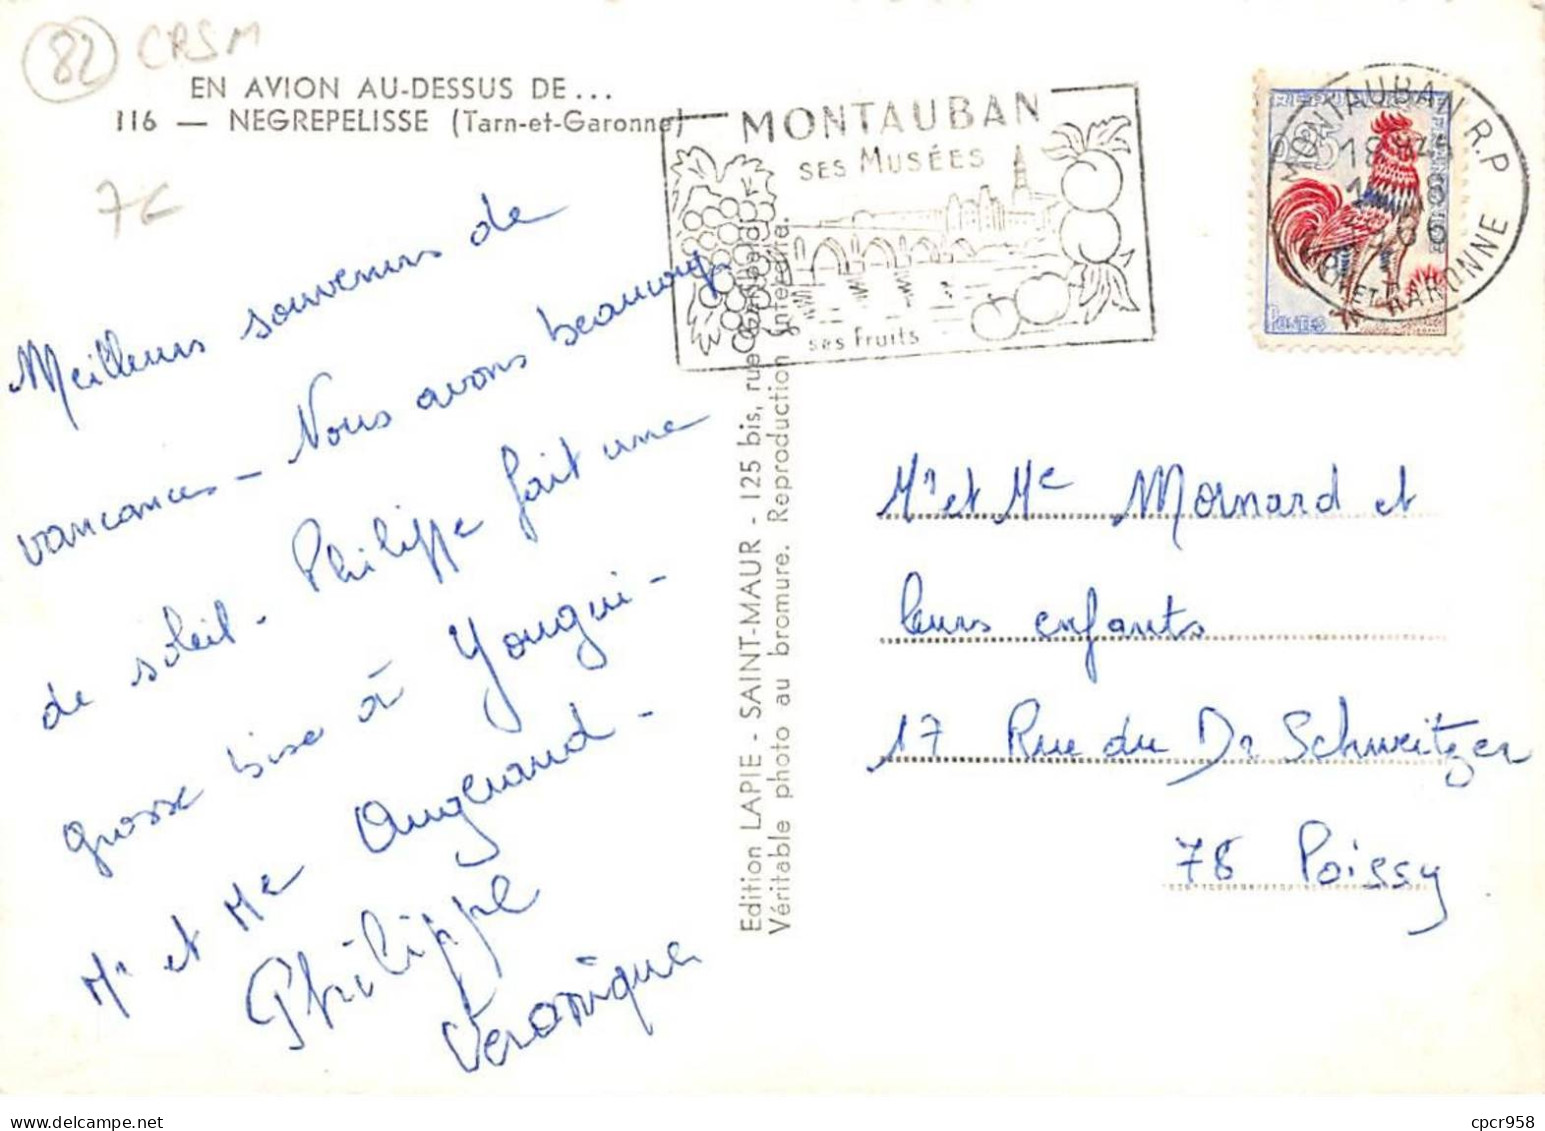 82 CPSM
EN AVION AU-DESSUS DE...
116 — NEGREPELISSE (Tarn-et-Garonne)
7€
Meilleurs souvenirs de
vancances - Nous avons beaucoup
de soleil - Philippe fait une
grosse bise à Yougui -
Mr et Me Augenaud -
Philippe
Veronique
Edition LAPIE - SAINT-MAUR - 125 bis, rue
Véritable photo au bromure. Reproduction interdite.
MONTAUBAN
SES MUSÉES
ses fruits
MONTAUBAN R.P.
18H45
1966
TARN ET GARONNE
POSTES
Mr et Me Mornard et
leurs enfants
17 Rue du Dr Schweitzer
78 Poissy
cpcr958